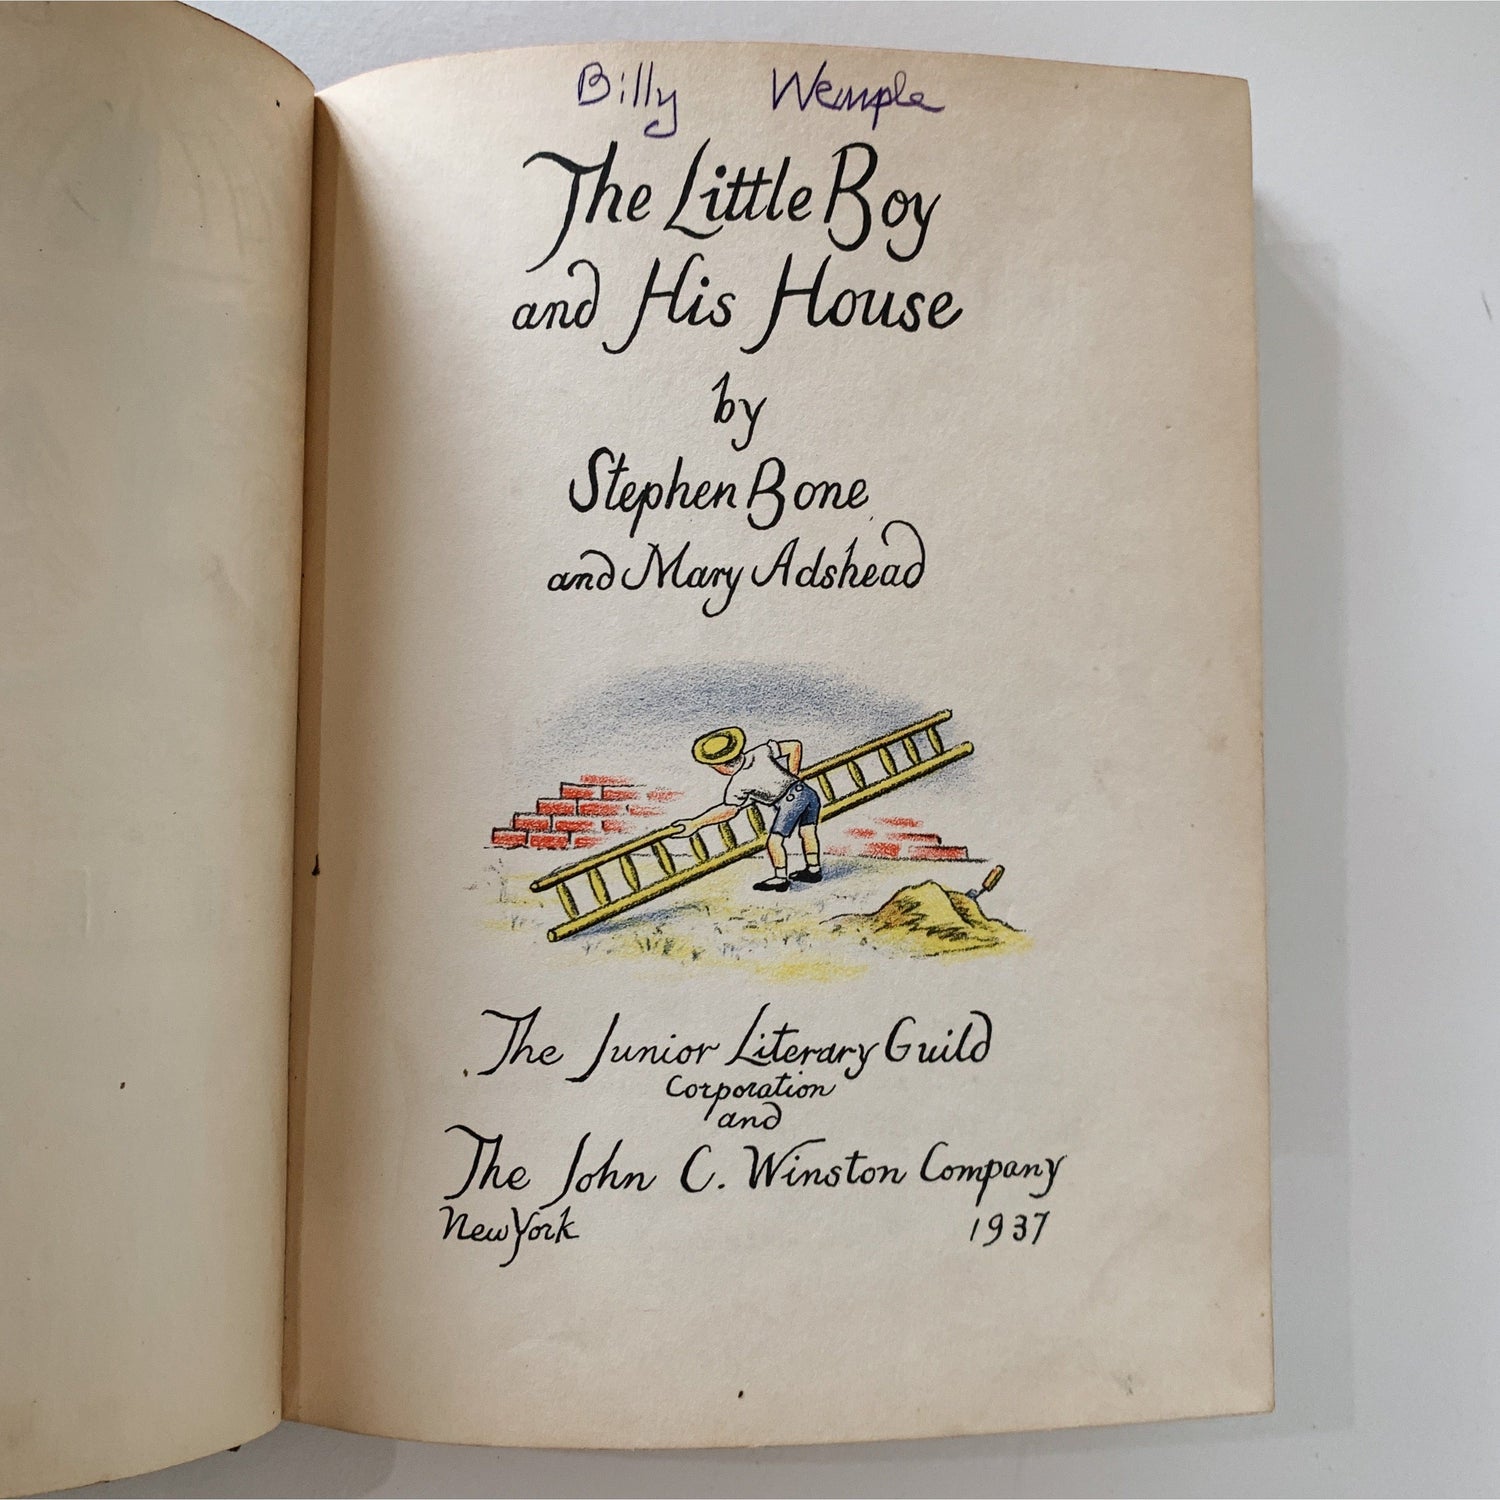 Billy Wemple
The Little Boy
and His House
by
Stephen Bone
and Mary Adshead
The Junior Literary Guild
Corporation
and
The John C. Winston Company
New York 1937